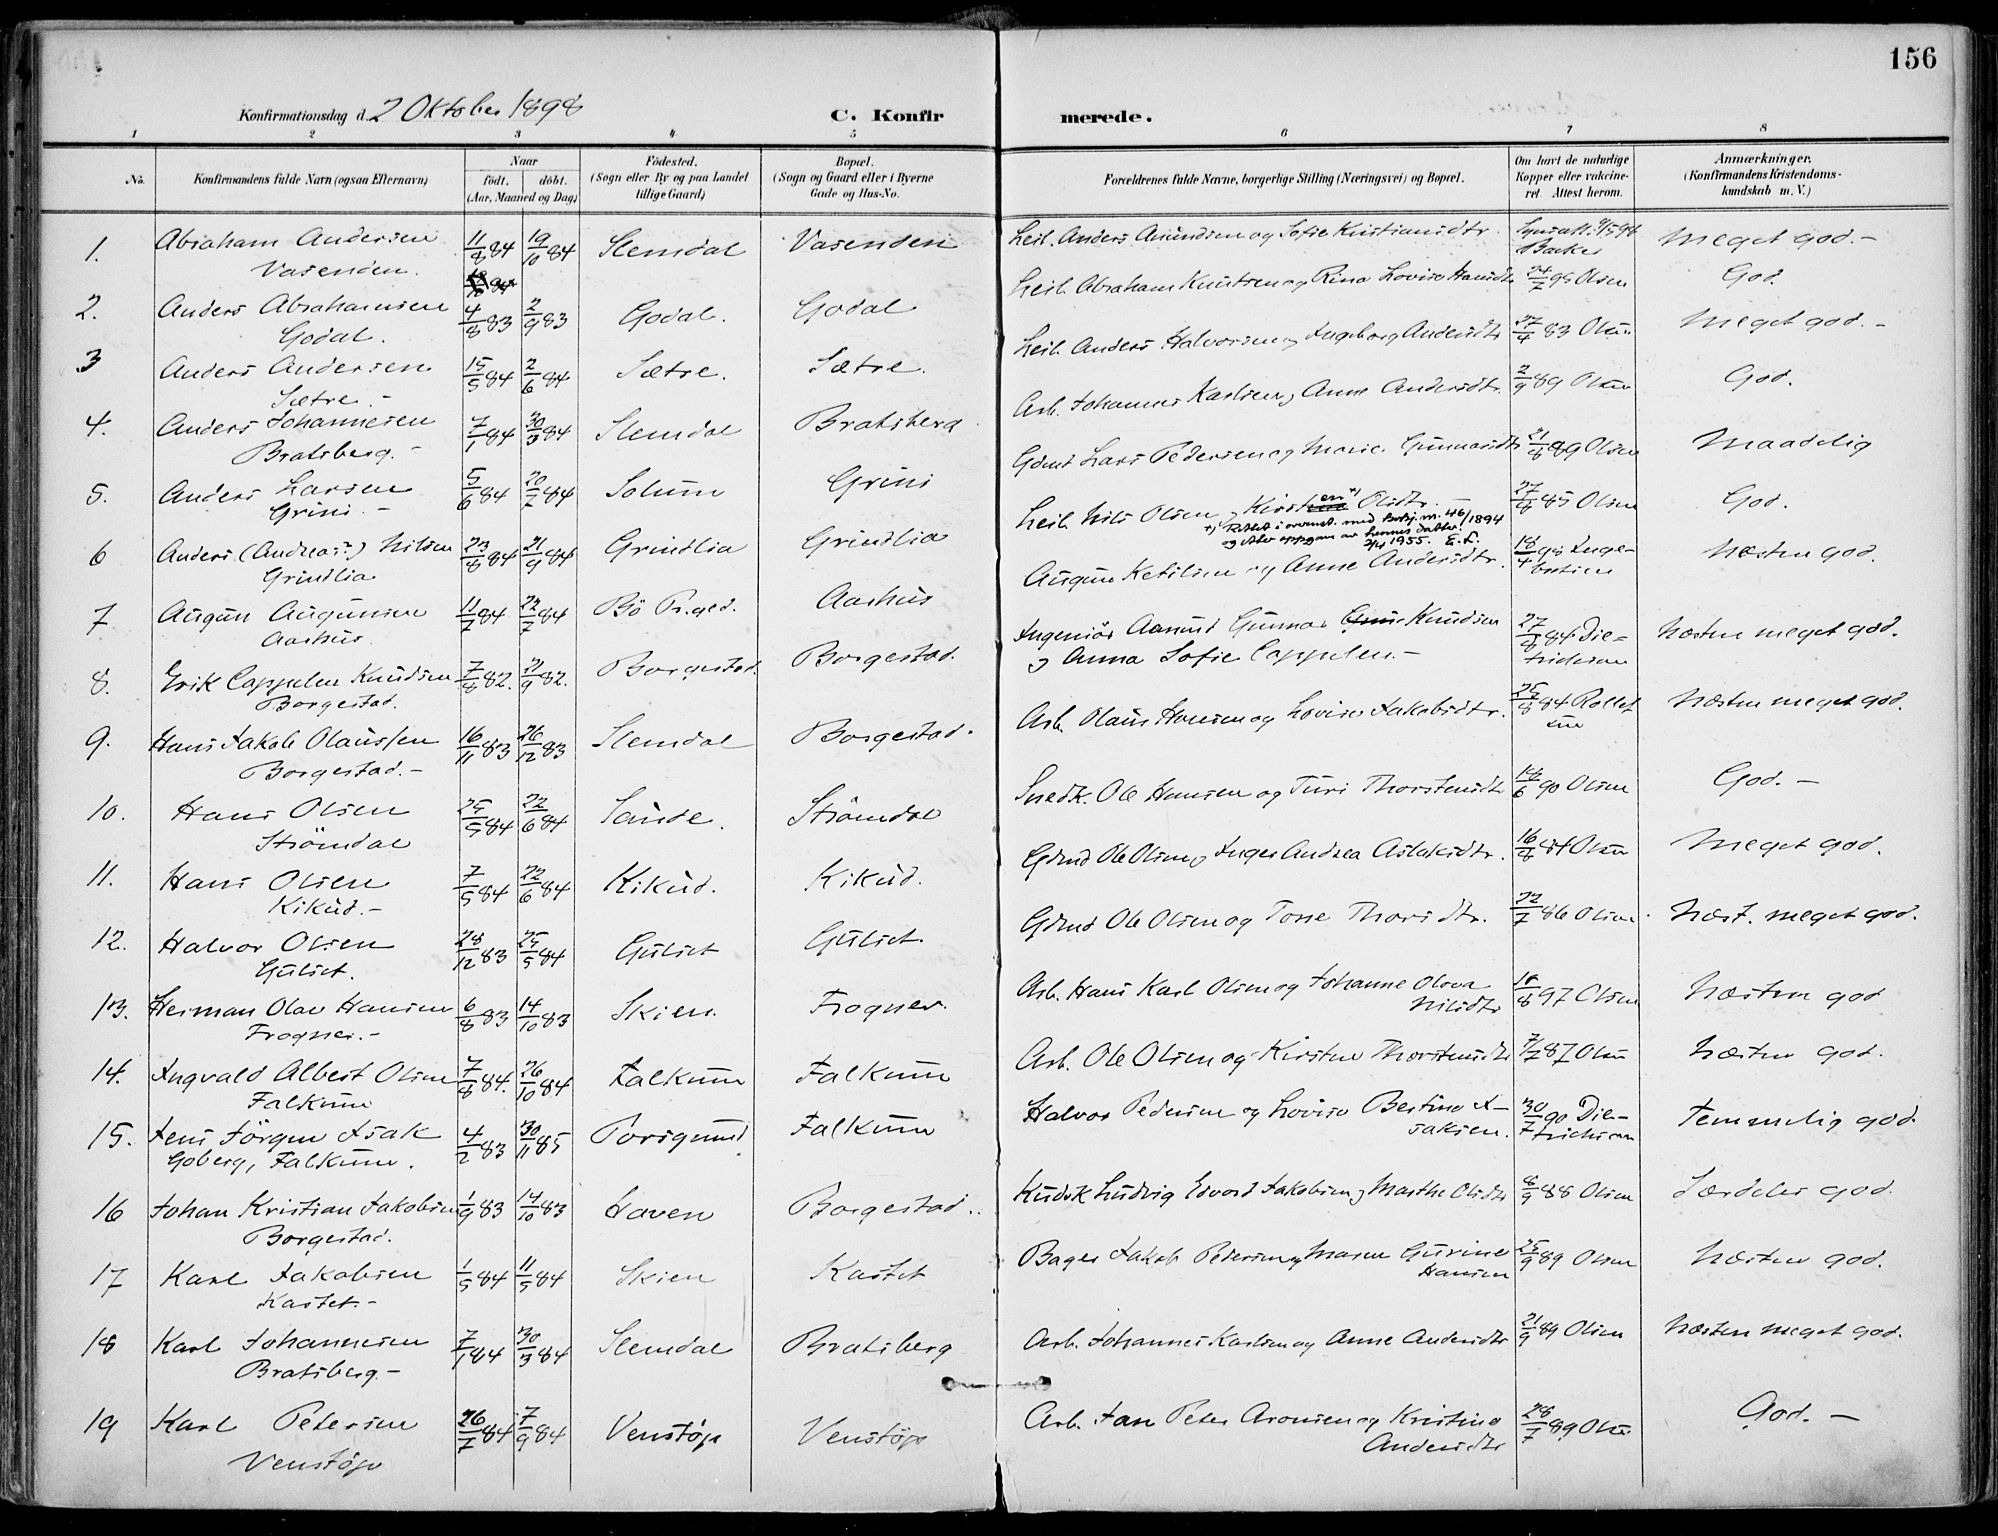 156
Konfirmationsdag d. 2 Oktober 1898
C. Konfirmerede.
1 2 3 4 5 6 7 8
No.
Konfirmandens fulde Navn (ogsaa Efternavn)
Naar
födt. döbt.
(Aar, Maaned og Dag)
Födested.
(Sogn eller By og paa Landet
tillige Gaard)
Bopæl.
(Sogn og Gaard eller i Byerne
Gade og Hus-No.
Forældrenes fulde Navne, borgerlige Stilling (Næringsvei) og Bopæl.
Om havt de naturlige
Kopper eller vakcine-
ret. Attest herom.
Anmærkninger.
(Konfirmandens Kristendoms-
kundskab m. V.)
1. Abraham Andersen 11/8 84 19/10 84 Slemdal Vasenden Leil. Anders Amundsen og Sofie Kristiansdtr. Backe Meget god.-
Vasenden.
2. Anders Abrahamsen 4/8 83 2/9 83 Godal. Godal Leil. Abraham Knutsen og Rina Lovise Hansdtr 24/7 95 Olsen God.
Godal.
3 Anders Andersen 15/5 84 2/6 84 Sætre. Sætre. Leil. Anders Halvorsen og Ingeborg Andersdtr 27/4 83 Olsen Meget god.-
Sætre.-
4. Anders Johannesen 7/1 84 30/3 84 Slemdal Bratsberg Arb. Johannes Karlsen og Anne Andersdtr. 2/9 89 Olsen God.
Bratsberg.-
5. Anders Larsen 5/6 84 20/7 84 Solum Grini Gdmd Lars Pedersen og Marie Gunnarsdtr 21/8 89 Olsen Maadelig
Grini.-
6 Anders (Andreas?) Nilsen 23/8 84 21/9 84 Grindlia Grindlia Leil. Nils Olsen og Kirsten +) Olsdtr. 27/8 85 Olsen God.
Grindlia
+) Rettet i overenst. med Bevj. nr. 46/1894
og etter oppgave av hennes datter.
2/4 1955. E.L.
7. Augun Augunsen 11/7 84 22/7 84 Bö Pr.gjed. Aarhus Augun Ketilsen og Anne Andersdtr. 18/4 98 Inge-
bretsen Næsten god.
Aarhus.
8. Erik Cappelen Knudsen 7/8 82. 21/9 82. Borgestad. Borgestad. Ingeniör Aanund Gunnar Knudsen
og Anna Sofie Cappelen.- 27/8 84. Die-
trichson Næsten meget god.
Borgestad.
9. Hans Jakob Olaussen 16/11 83 26/12 83 Slemdal Borgestad. Arb. Olaus Hansen og Lovise Jakobsdtr. 25/8 84 Næsten meget god.
Borgestad.-
10. Hans Olsen 25/5 84 22/6 84 Sande. Strömdal Snedk. Ole Hansen og Turi Thorstensdtr 14/6 90 Olsen God.-
Strömdal
11. Hans Olsen 7/5 84 22/6 84 Kikud. Kikud. Gdmd Ole Olsen og Inger Andrea Aslaksdtr. 16/8 84 Olsen Meget god.
Kikud.-
12. Halvor Olsen 28/12 83 25/5 84 Gulset Gulset. Gdmd Ole Olsen og Tone Thorsdtr. 22/7 86 Olsen. Næst. meget god.
Gulset.
13. Herman Olav Hansen 6/8 83 14/10 83 Skien. Frogner. Arb. Hans Karl Olsen og Johanne Olova
Nilsdtr 10/8 97 Olsen Næsten god
Frogner.-
14. Ingvald Albert Olsen 7/8 84. 26/10 84 Falkum Falkum Arb. Ole Olsen og Kirsten Thorstensdtr 7/7 87 Olsen Næsten god.
Falkum
15. Jens Jörgen Isak 4/2 83 30/11 85 Porsgrund Falkum Halvor Pedersen og Lovise Bertine I-
saksen. 30/7 90 Die-
trichson Temmelig god.
Goberg, Falkum.
16 Johan Kristian Jakobsen 1/9 83 14/10 83 Haven Borgestad.. Kudsk Ludvig Edvard Jakobsen og Marthe Olsdtr 8/9 88 Olsen Særdeles god.
Borgestad.
17 Karl Jakobsen 1/5 84 11/5 84 Skien Kastet Bager Jakob Pedersen og Maren Gurine
Hansen 25/9 89 Olsen Næsten god.
Kastet.-
18 Karl Johannesen 7/1 84 30/3 84 Slemdal Bratsberg Arb. Johannes Karlsen og Anne Andersdtr 21/9 89 Olsen Næsten meget god.
Bratsberg.-
19 Karl Petersen 26/7 84 7/9 84 Venstöp Venstöp Arb. Jan Peter Aronsen og Kristine
Andersdtr 28/7 89 Olsen God.-
Venstöp